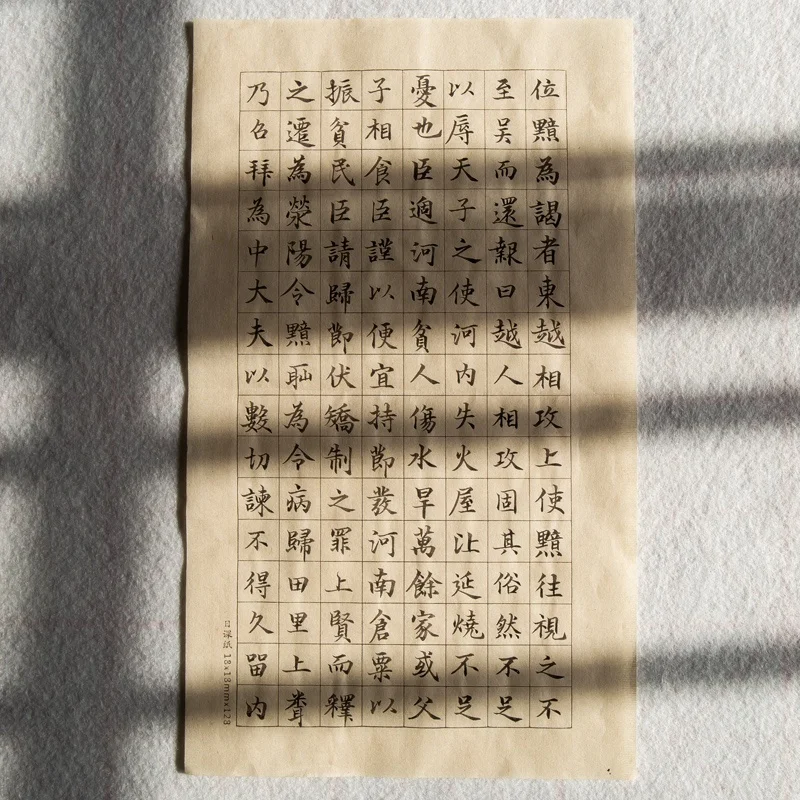 位黯為謁者東越相攻上使黯往視之不
至吳而還報曰越人相攻固其俗然不足
以辱天子之使河内失火屋比延燒不足
憂也臣過河南貧人傷水旱萬餘家或父
子相食臣謹以便宜持節發河南倉粟以
振貧民臣請歸節伏矯制之罪上賢而釋
之遷為滎陽令黯耻為令病歸田里上聞
乃召拜為中大夫以數切諫不得久留内
日課紙 18×18mm×128